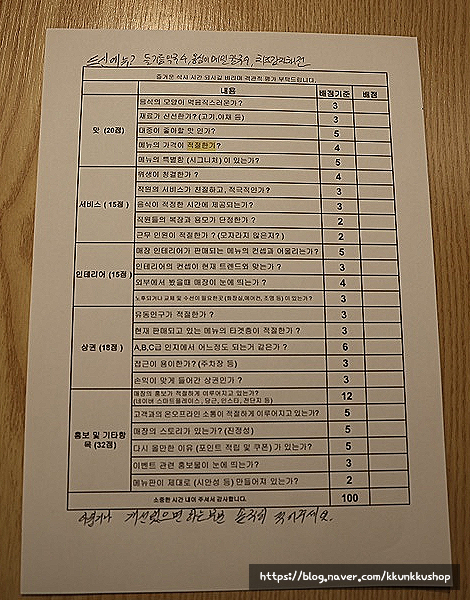 드신메뉴? 들기름막국수, 옹심이메밀칼국수, 치즈감자전
즐거운 식사 시간 되시길 바라며 객관적 평가 부탁드립니다.
내용 배점기준 배점
맛 (20점)
음식의 모양이 먹음직스러운가? 3
재료가 신선한가? (고기,야채 등) 3
대중이 좋아할 맛 인가? 5
메뉴의 가격이 적절한가? 4
메뉴의 특별함 (시그니처) 이 있는가? 5
서비스 (15점)
위생이 청결한가? 4
직원의 서비스가 친절하고, 적극적인가? 3
음식이 적정한 시간에 제공되는가? 3
직원들의 복장과 용모가 단정한가? 2
근무 인원이 적절한가? (모자라지 않은지?) 2
인테리어 (15점)
매장 인테리어가 판매되는 메뉴의 컨셉과 어울리는가? 5
인테리어의 컨셉이 현재 트렌드와 맞는가? 3
외부에서 봤을때 매장이 눈에 띄는가? 4
노후되거나 교체 및 수선이 필요한곳 (화장실,에어컨, 조명 등) 이 있는가? 3
상권 (18점)
유동인구가 적절한가? 3
현재 판매되고 있는 메뉴의 타겟층이 적절한가? 3
A,B,C급 인지에서 어느정도 되는거 같은가? 6
접근이 용이한가? (주차장 등) 3
손익이 맞게 들어간 상권인가? 3
홍보 및 기타항목 (32점)
매장의 홍보가 적절하게 이루어지고 있는가?
(네이버 스마트플레이스, 당근, 인스타, 전단지 등) 12
고객과의 온오프라인 소통이 적절하게 이루어지고 있는가? 5
매장의 스토리가 있는가? (진정성) 5
다시 올만한 이유 (포인트 적립 및 쿠폰) 가 있는가? 5
이벤트 관련 홍보물이 눈에 띄는가? 3
메뉴판이 제대로 (시안성 등) 만들어져 있는가? 2
소중한 시간 내어 주셔서 감사합니다. 100
개선했으면 하는부분 솔직히 적어주세요.
https://blog.naver.com/kkunkkushop